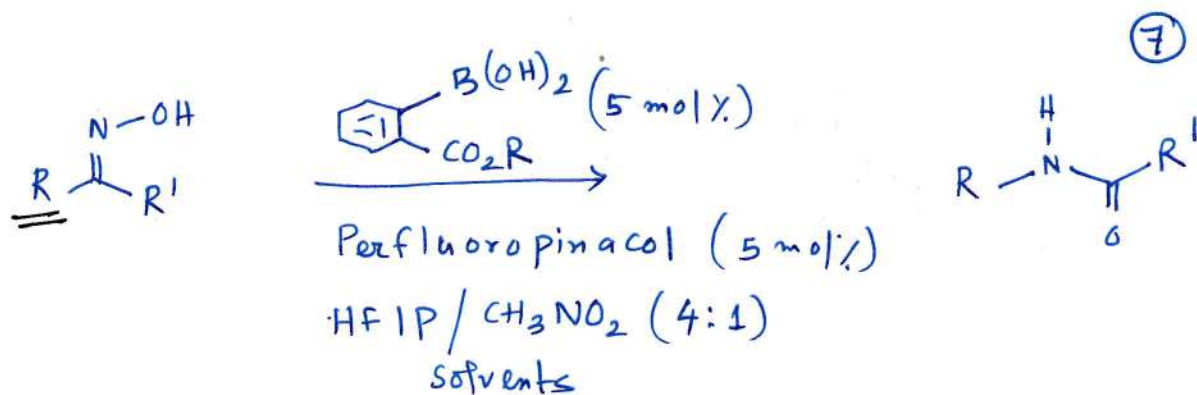 7
B(OH)2 (5 mol%)
N-OH
CO2R
R
R'
Perfluoropinacol (5 mol%)
HFIP/CH3NO2 (4:1)
solvents
H
R
N
R'
O